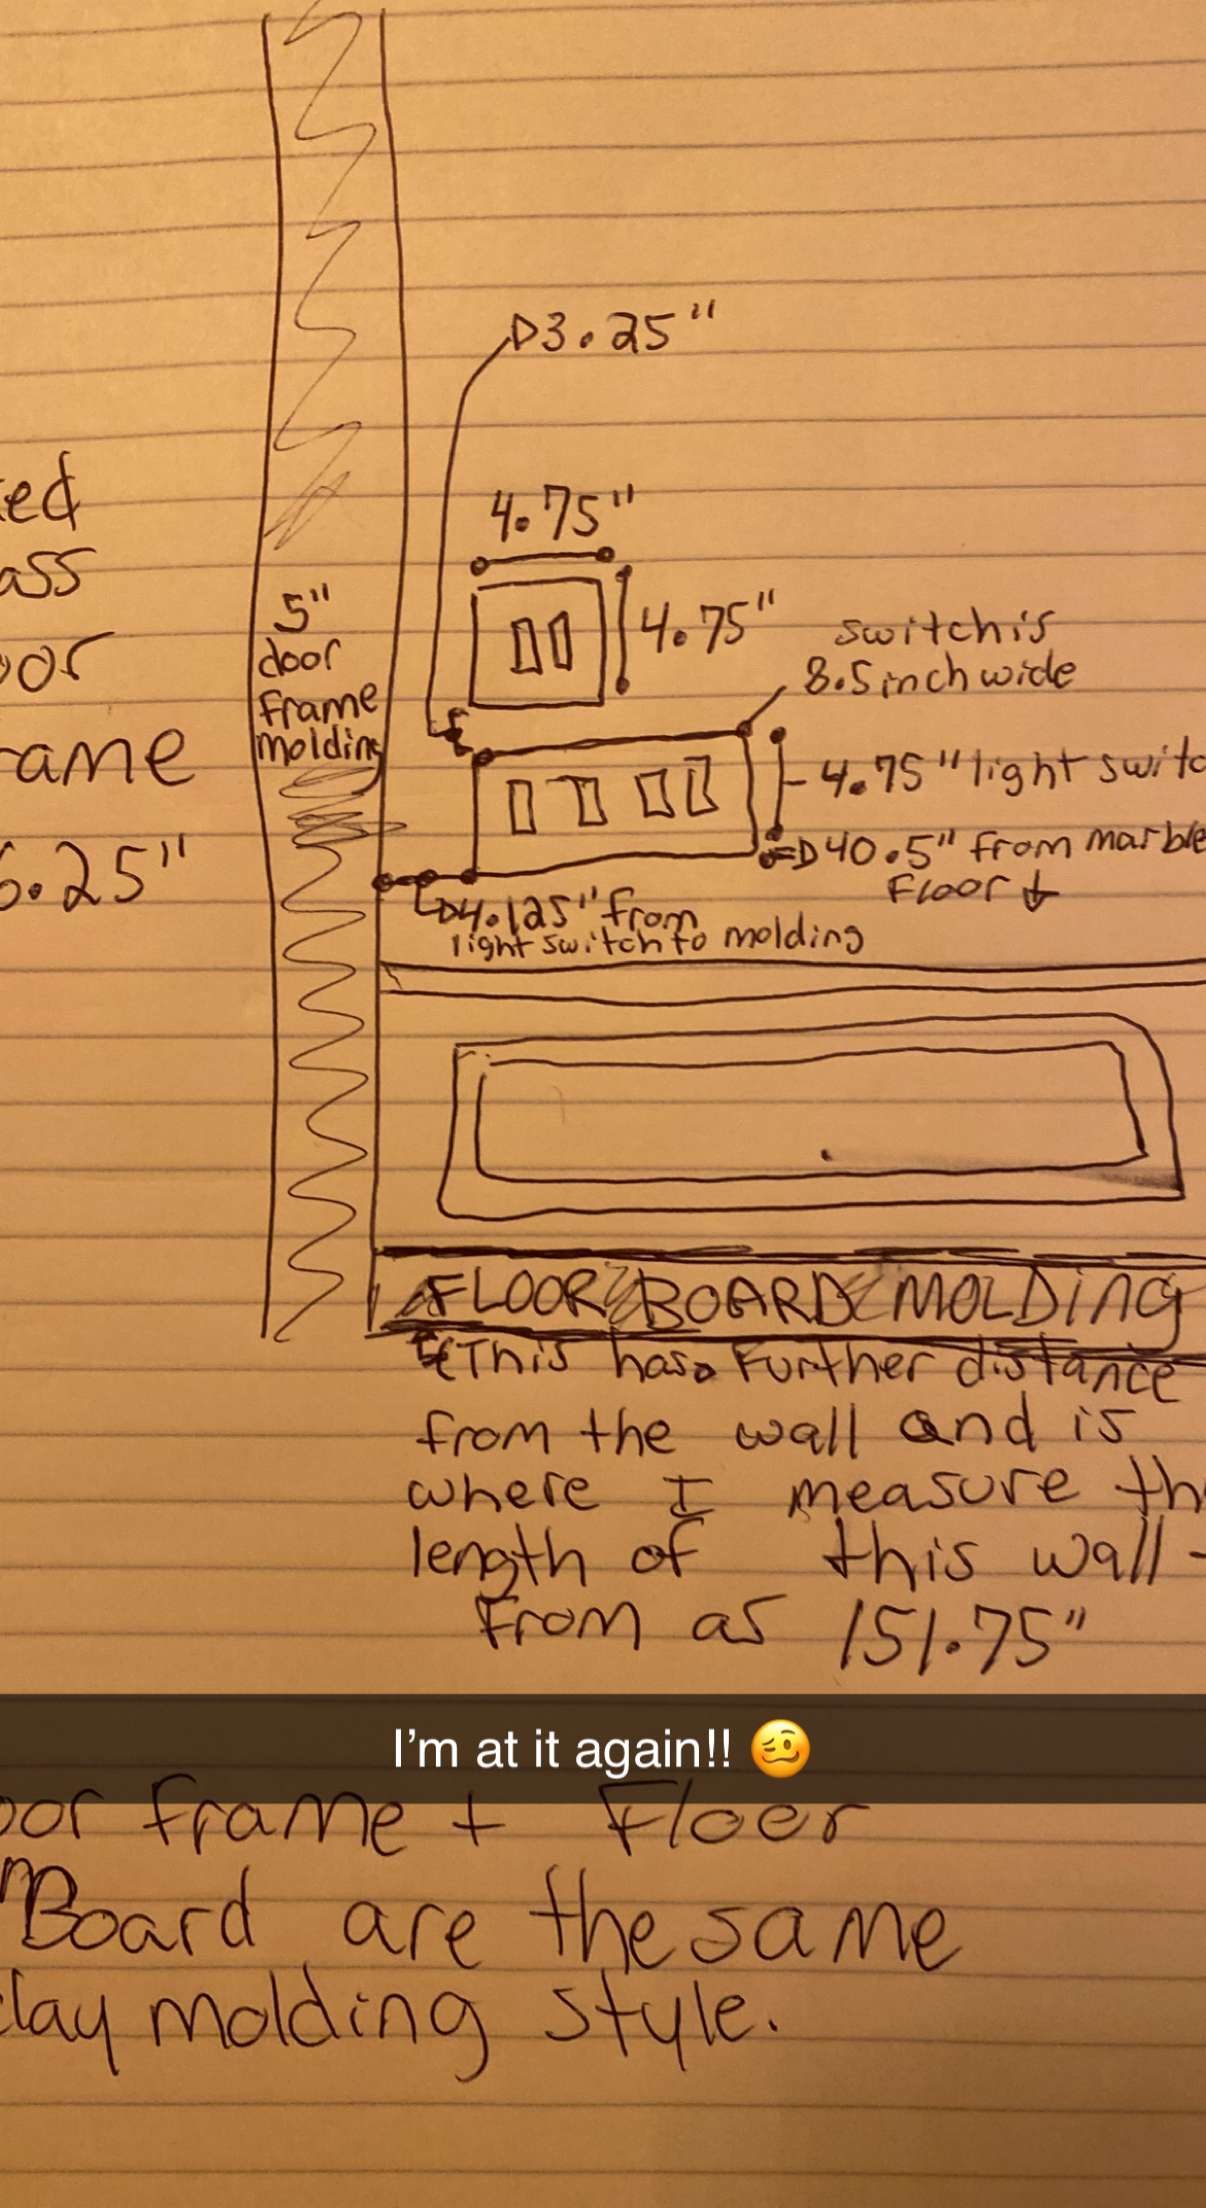 D3.25"
4.75"
4.75"
switch is
8.5 inch wide
5"
door
frame
molding
4.75" light switc
D40.5" from marble
Floor
D4.125" from
light switch to molding
ed
ass
oor
rame
6.25"
FLOOR BOARD MOLDING
This has Further distance
from the wall and is
where I measure th
length of this wall -
From as 151.75"
I'm at it again!! 🥴
oor frame + Floor
Board are the same
lay molding style.